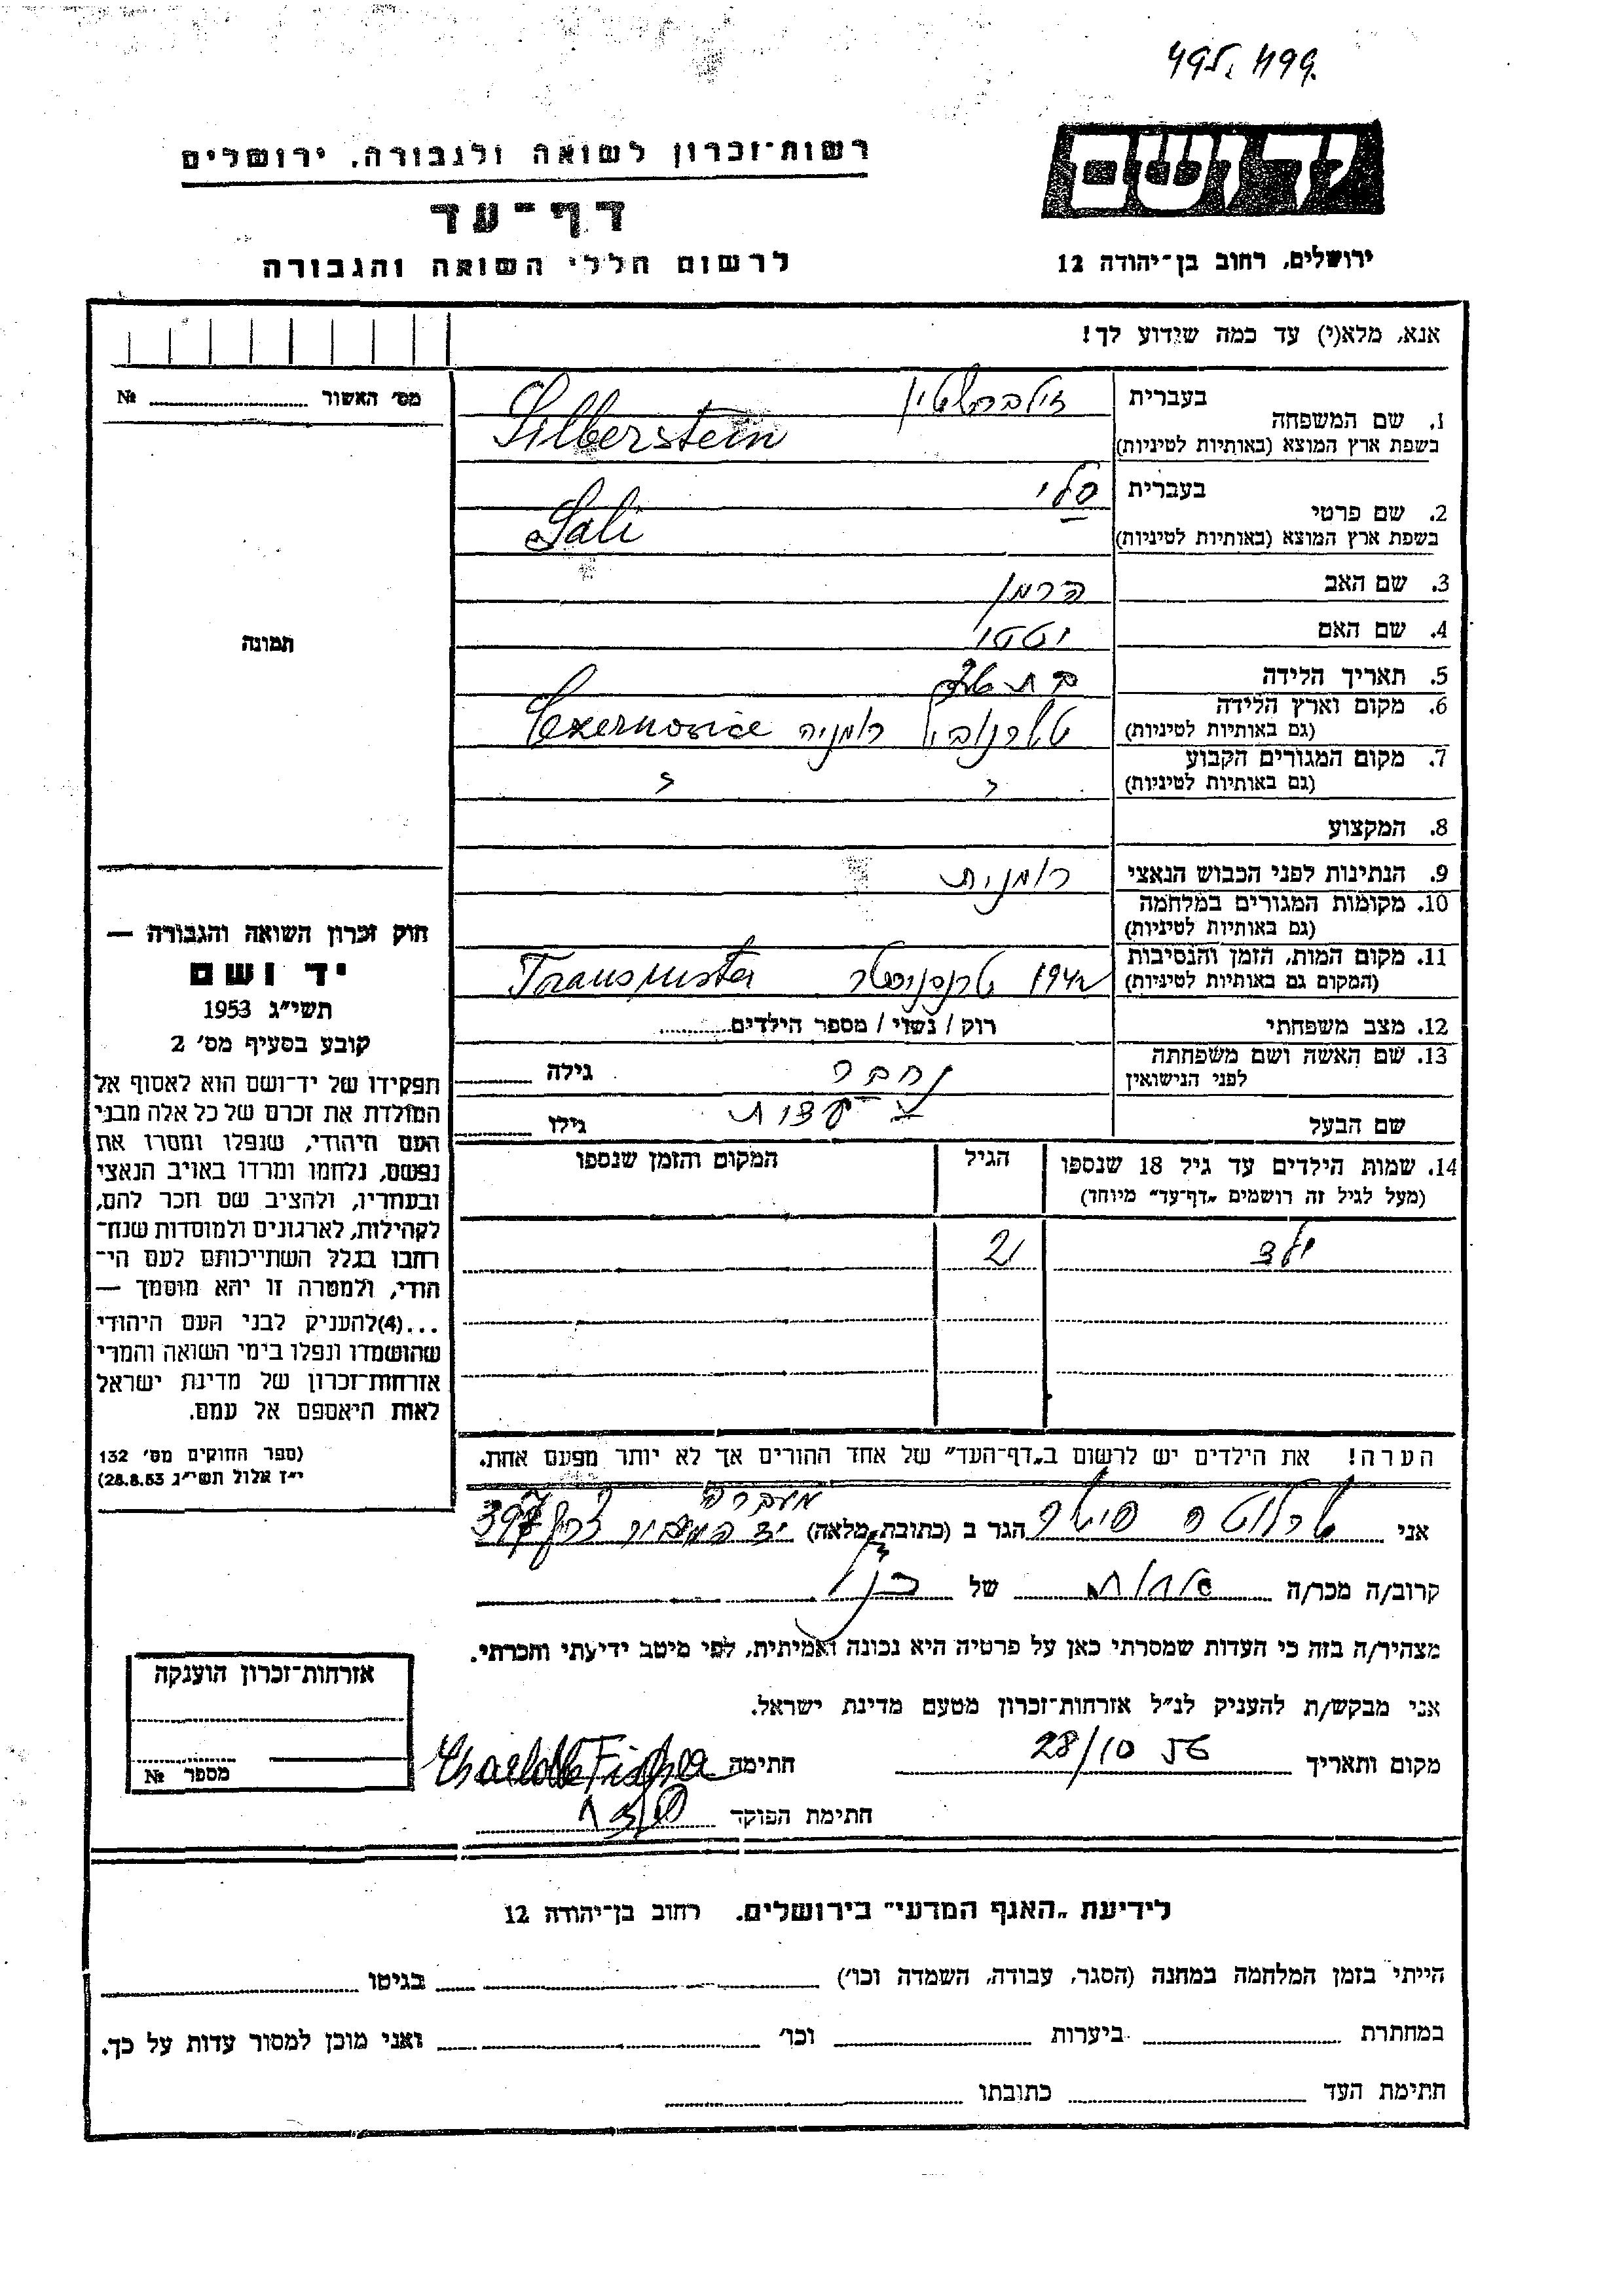 495. 499.
יד ושם
רשות־זכרון לשואה ולגבורה, ירושלים
דף־עד
ירושלים, רחוב בן־יהודה 12
לרשום חללי השואה והגבורה
אנא, מלא(י) עד כמה שידוע לך!
מס׳ האשור № 
תמונה
1. שם המשפחה
בעברית זילברשטיין
בשפת ארץ המוצא (באותיות לטיניות) Silberstein
2. שם פרטי
בעברית סלי
בשפת ארץ המוצא (באותיות לטיניות) Sali
3. שם האב הרמן
4. שם האם יטטי
5. תאריך הלידה בת
6. מקום וארץ הלידה רומניה Czernovice
(גם באותיות לטיניות)
7. מקום המגורים הקבוע
(גם באותיות לטיניות)
8. המקצוע
9. הנתינות לפני הכבוש הנאצי רומנית
10. מקומות המגורים במלחמה
(גם באותיות לטיניות)
11. מקום המות, הזמן והנסיבות
(המקום גם באותיות לטיניות) טרנסניסטר Transnister
12. מצב משפחתי רוק / נשוי / מספר הילדים
13. שם האשה ושם משפחתה
לפני הנישואין גילה
שם הבעל גילו
14. שמות הילדים עד גיל 18 שנספו הגיל המקום והזמן שנספו
(מעל לגיל זה רושמים „דף־עד״ מיוחד)
ילד 2
הערה! את הילדים יש לרשום ב„דף־העד״ של אחד ההורים אך לא יותר מפעם אחת.
מעברה
אני שרלוטה פישר הגר ב (כתובת מלאה) יד המעביר צריף 397
קרוב/ה מכר/ה של הנ״ל
מצהיר/ה בזה כי העדות שמסרתי כאן על פרטיה היא נכונה ואמיתית, לפי מיטב ידיעתי והכרתי.
אני מבקש/ת להעניק לנ״ל אזרחות־זכרון מטעם מדינת ישראל.
מקום ותאריך 28/10 56 חתימה Charlotte Fischer
חתימת הפוקד
חוק זכרון השואה והגבורה —
יד ושם
תשי״ג 1953
קובע בסעיף מס׳ 2
תפקידו של יד־ושם הוא לאסוף אל
המולדת את זכרם של כל אלה מבני
העם היהודי, שנפלו ומסרו את
נפשם, נלחמו ומרדו באויב הנאצי
ובעוזריו, ולהציב שם וזכר להם,
לקהילות, לארגונים ולמוסדות שנח־
רבו בגלל השתייכותם לעם הי־
הודי, ולמטרה זו יהא מוסמך —
...(4) להעניק לבני העם היהודי
שהושמדו ונפלו בימי השואה והמרי
אזרחות־זכרון של מדינת ישראל
לאות היאספם אל עמם.
(ספר החוקים מס׳ 132
י״ז אלול תשי״ג 28.8.53)
אזרחות־זכרון הוענקה
מספר №
לידיעת „האגף המדעי״ בירושלים. רחוב בן־יהודה 12
הייתי בזמן המלחמה במחנה (הסגר, עבודה, השמדה וכו׳) בגיטו
במחתרת ביערות וכו׳ ואני מוכן למסור עדות על כך.
חתימת העד כתובתו